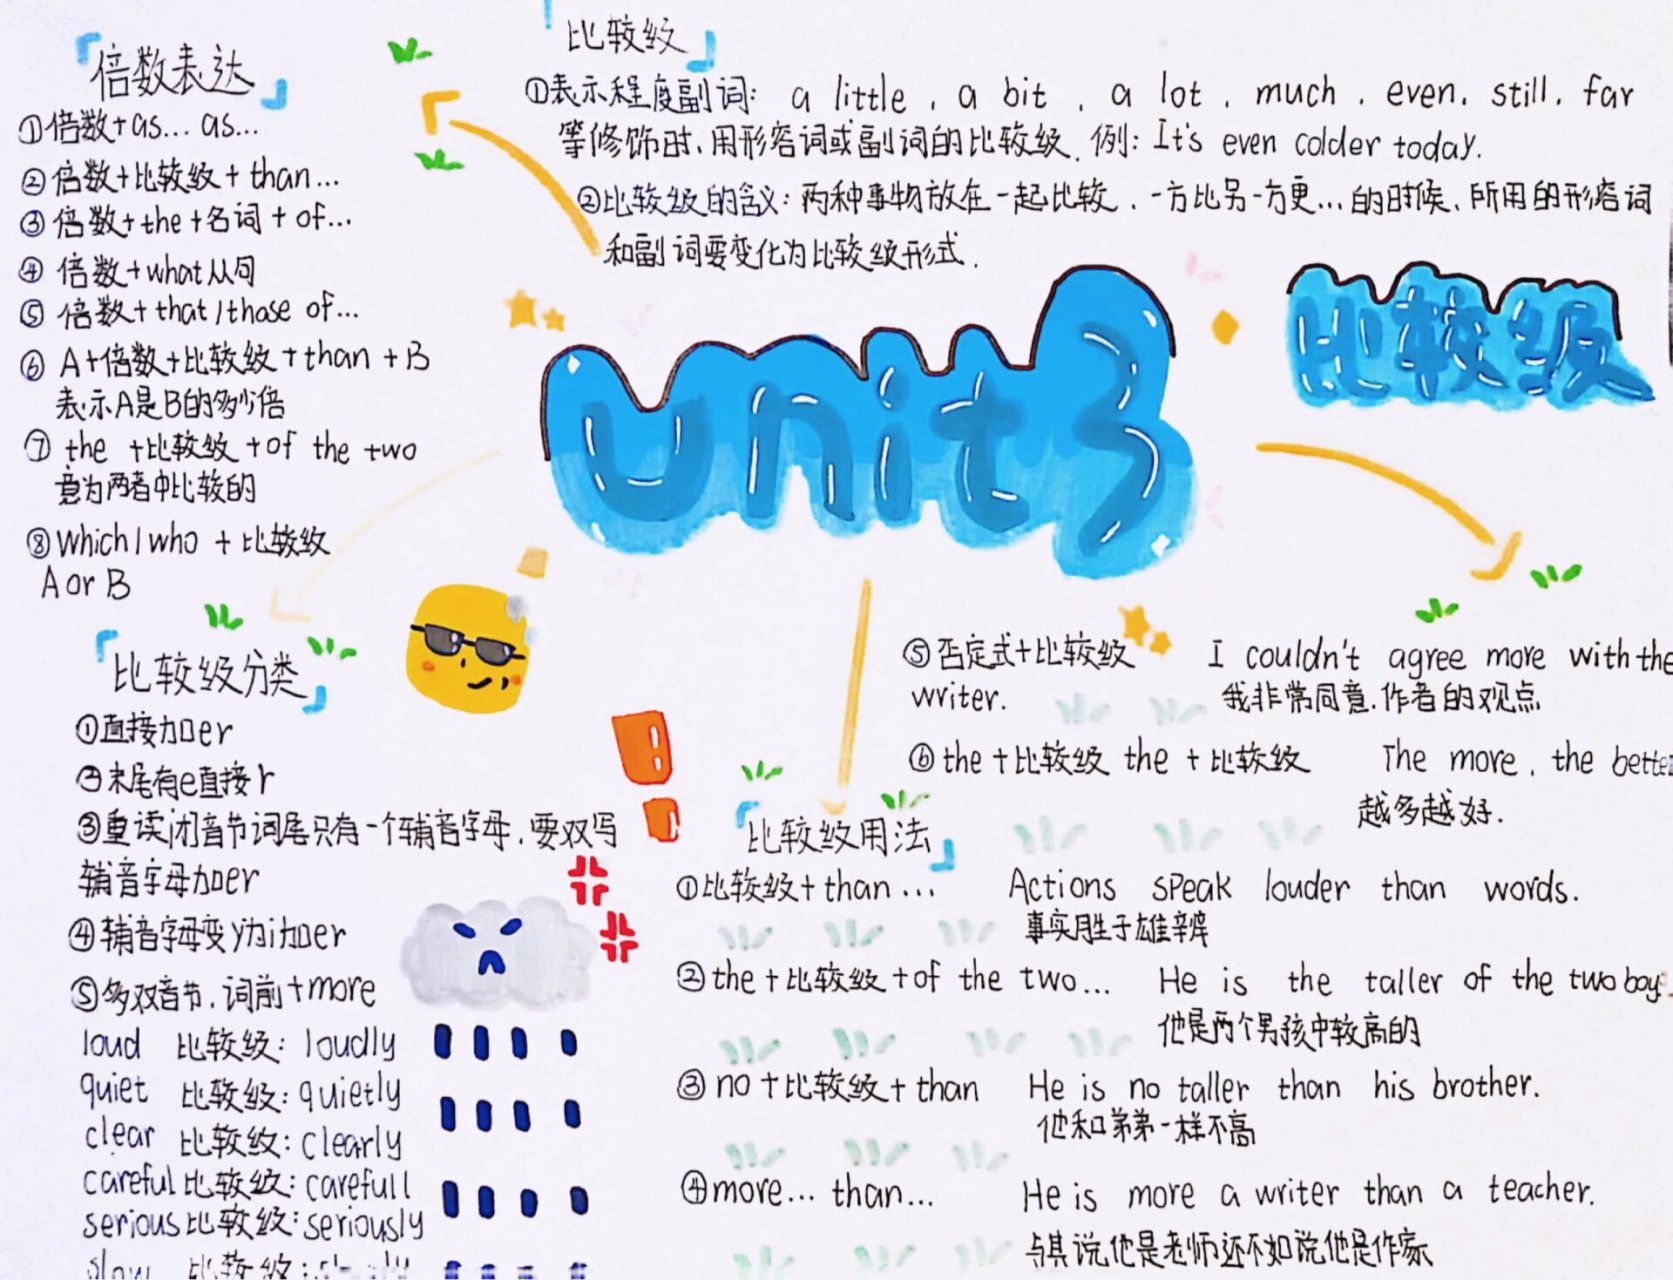 倍数表达
①倍数+as... as...
②倍数+比较级+than...
③倍数+the+名词+of...
④倍数+what从句
⑤倍数+that/those of...
⑥A+倍数+比较级+than+B
表示A是B的多少倍
⑦the +比较级+of the two
意为两者中比较的
⑧Which/who + 比较级
A or B
比较级
①表示程度副词: a little, a bit, a lot, much, even, still, far
等修饰时、用形容词或副词的比较级. 例: It's even colder today.
②比较级的含义: 两种事物放在一起比较, 一方比另一方更...的时候、所用的形容词
和副词要变化为比较级形式.
unit3
比较级
比较级分类
①直接加er
②末尾有e直接r
③重读闭音节词尾只有一个辅音字母,要双写
辅音字母加er
④辅音字母变y为i加er
⑤多双音节,词前+more
loud 比较级: loudly
quiet 比较级: quietly
clear 比较级: clearly
careful 比较级: carefull
serious 比较级: seriously
slow 比较级:
比较级用法
①比较级+than... Actions speak louder than words.
事实胜于雄辩
②the+比较级+of the two... He is the taller of the two boy
他是两个男孩中较高的
③no+比较级+than He is no taller than his brother.
他和弟弟一样不高
④more... than... He is more a writer than a teacher.
与其说他是老师还不如说他是作家
⑤否定式+比较级 I couldn't agree more with the
writer. 我非常同意.作者的观点
⑥the+比较级 the+比较级 The more, the better
越多越好.